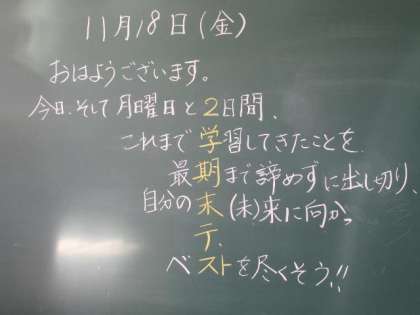 11月18日(金)
おはようございます。
今日、そして月曜日と2日間、
これまで学習してきたことを
最期まで諦めずに出し切り、
自分の末(未)来に向かっ
テ、
ベストを尽くそう!!